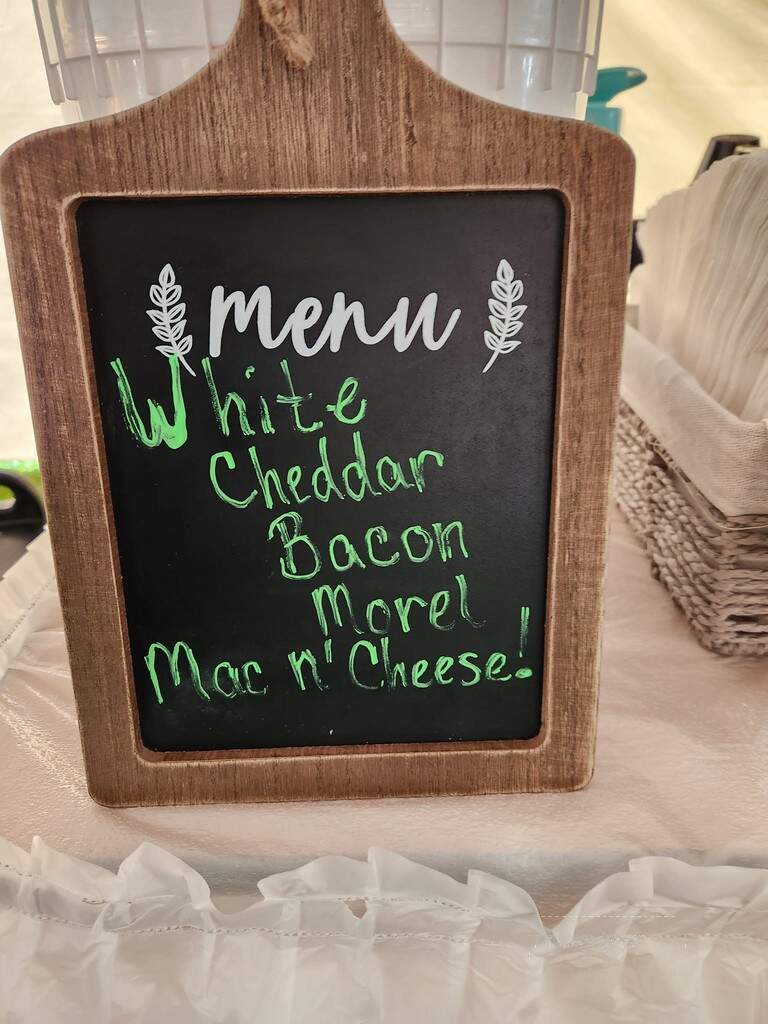 menu
White
Cheddar
Bacon
Morel
Mac n' Cheese!